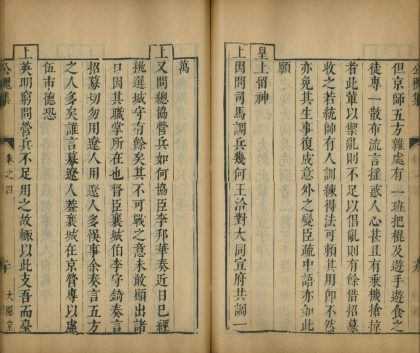 但京師五方雜處有一班把棍及遊手遊食之
徒專一散布流言搖惑人心甚且有乘機搶掠
者此輩以禦亂則不足以倡亂則有餘借招募
收之若統師有人訓練得法可賴其用卽不然
亦免其生事復成意外之變臣疏中語亦如此
願
皇上留神
上因問司馬調兵幾何王洽對大同宣府共調一
萬
上又問總協營兵如何協臣李邦華奏近日已經
挑選城守有餘矣其不可戰之意未敢顯出諸
口因其職掌所在也督臣襄城伯李守錡奏言
招募切勿用遼人用遼人多悞事余奏言五方
之人多矣誰言募遼人葢襄城在京營專以處
伍市德恐
上英明窮問營兵不足用之故輒以此支吾而臺
公槐集
卷之四